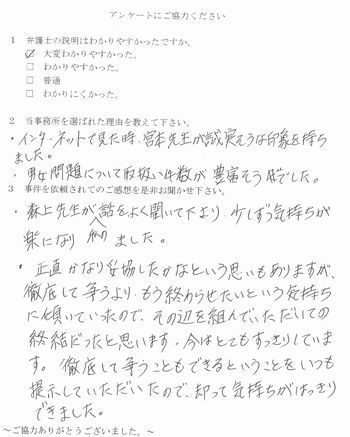 アンケートにご協力ください
1 弁護士の説明はわかりやすかったですか。
☑ 大変わかりやすかった。
□ わかりやすかった。
□ 普通
□ わかりにくかった。
2 当事務所を選ばれた理由を教えて下さい。
・インターネットで見た時、宮本先生が誠実そうな印象を持ち
ました。
・男女問題について取扱い件数が豊富そうでした。
3 事件を依頼されてのご感想を是非お聞かせ下さい。
・森上先生が話をよく聞いて下さり、少しずつ気持ちが
楽になりました。
・正直かなり妥協したかなという思いもありますが、
徹底して争うより、もう終わらせたいという気持ち
に傾いていったので、その辺を組んでいただいての
終結だったと思います。今はとてもすっきりしていま
す。徹底して争うこともできるということをいつも
提示していただいたので、却って気持ちがはっきり
できました。
～ご協力ありがとうございました。～